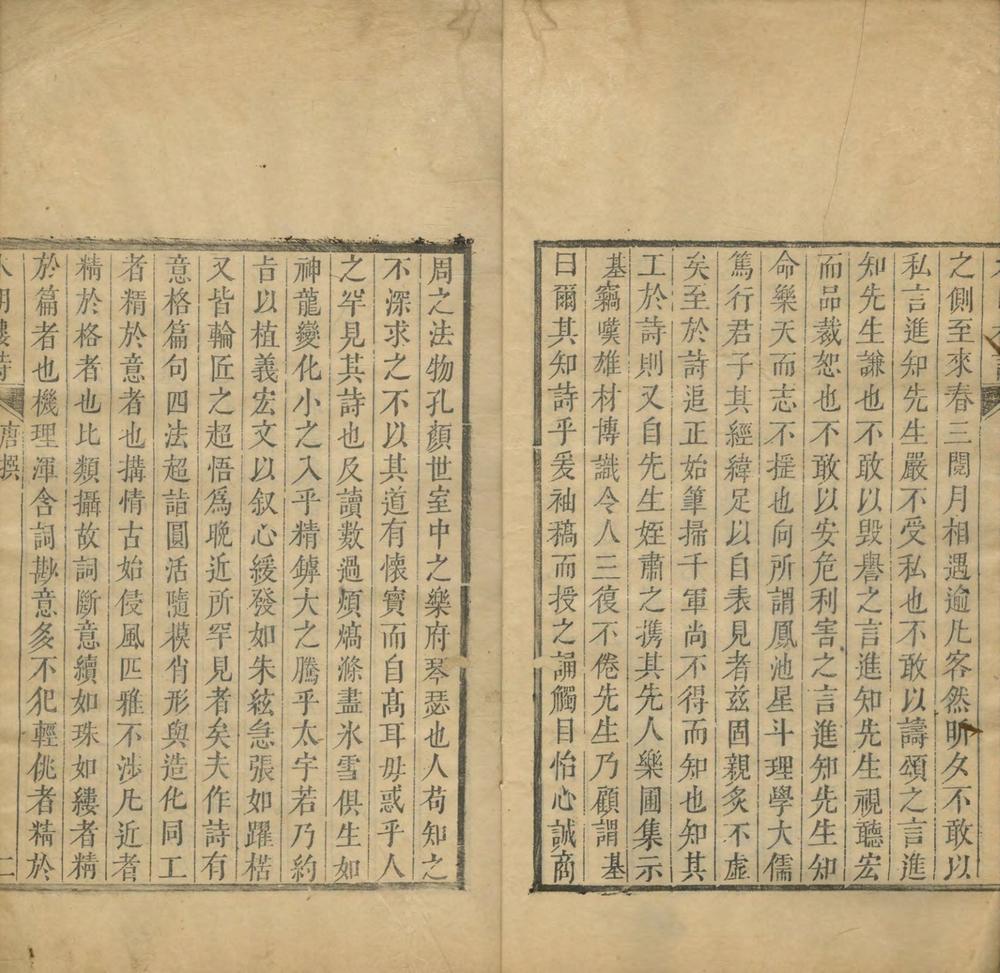 之側至來春三閱月相遇逾凡客然昕夕不敢以
私言進知先生嚴不受私也不敢以譸頌之言進
知先生謙也不敢以毀譽之言進知先生視聽宏
而品裁恕也不敢以安危利害之言進知先生知
命樂天而志不搖也向所謂鳳池星斗理學大儒
篤行君子其經緯足以自表見者兹固親炙不虛
矣至於詩追正始筆掃千軍尚不得而知也知其
工於詩則又自先生姪肅之携其先人樂圃集示
基竊嘆雄材博識令人三復不倦先生乃顧謂基
曰爾其知詩乎爰袖稿而授之誦觸目怡心誠商
周之法物孔顏世室中之樂府琴瑟也人苟知之
不深求之不以其道有懷寳而自髙耳毋惑乎人
之罕見其詩也及讀數過煩熇滌盡氷雪俱生如
神龍變化小之入乎精鎼大之騰乎太宇若乃約
旨以植義宏文以叙心緩發如朱絃急張如躍楛
又皆輪匠之超悟爲晩近所罕見者矣夫作詩有
意格篇句四法超詣圓活隨摸肖形與造化同工
者精於意者也搆情古始侵風匹雅不涉凡近者
精於格者也比類攝故詞斷意續如珠如縷者精
於篇者也機理渾含詞尠意多不犯輕佻者精於
唐撰
二